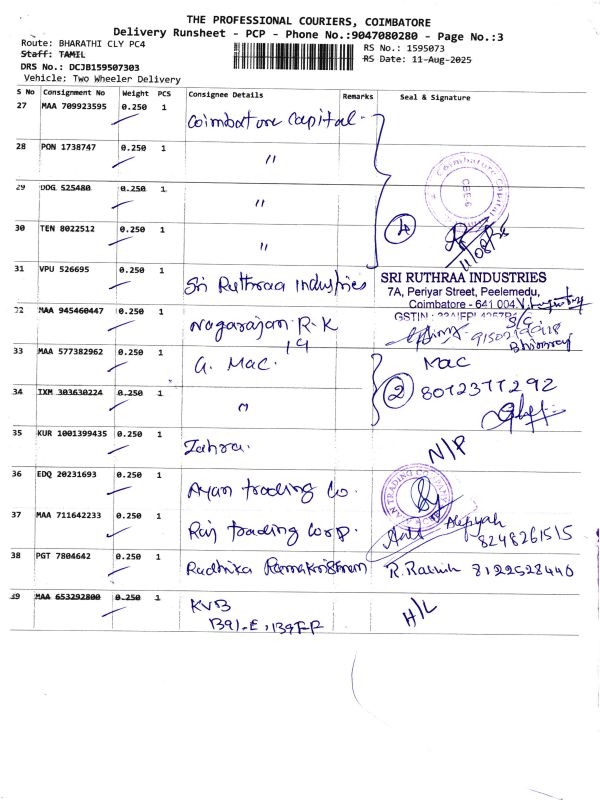 THE PROFESSIONAL COURIERS, COIMBATORE
Delivery Runsheet - PCP - Phone No.:9047080280 - Page No.:3
Route: BHARATHI CLY PC4
RS No.: 1595073
Staff: TAMIL
RS Date: 11-Aug-2025
DRS No.: DCJB159507303
Vehicle: Two Wheeler Delivery
S No Consignment No Weight PCS Consignee Details Remarks Seal & Signature
27 MAA 709923595 0.250 1 Coimbatore Capital.
28 PON 1738747 0.250 1 〃
29 OOG 525480 0.250 1 〃
Coimbatore Capital
4
11/08
30 TEN 8022512 0.250 1 〃
31 VPU 526695 0.250 1 Sri Ruthraa Industries
SRI RUTHRAA INDUSTRIES
7A, Periyar Street, Peelemedu,
Coimbatore - 641 004.
GSTIN :
32 MAA 945460447 0.250 1 Nagarajan. R. K
S/C
33 MAA 577382962 0.250 1 G. Mac.
Mac
2 8072377292
34 IXM 303630224 0.250 1 〃
35 KUR 1001399435 0.250 1 Zahra.
N/P
36 EDQ 20231693 0.250 1 Ayan trading Co.
37 MAA 711642233 0.250 1 Raj trading Corp.
8248261515
38 PGT 7804642 0.250 1 Radhika Ramakrishnan
8122528440
39 MAA 653292800 0.250 1 KVB
H/L